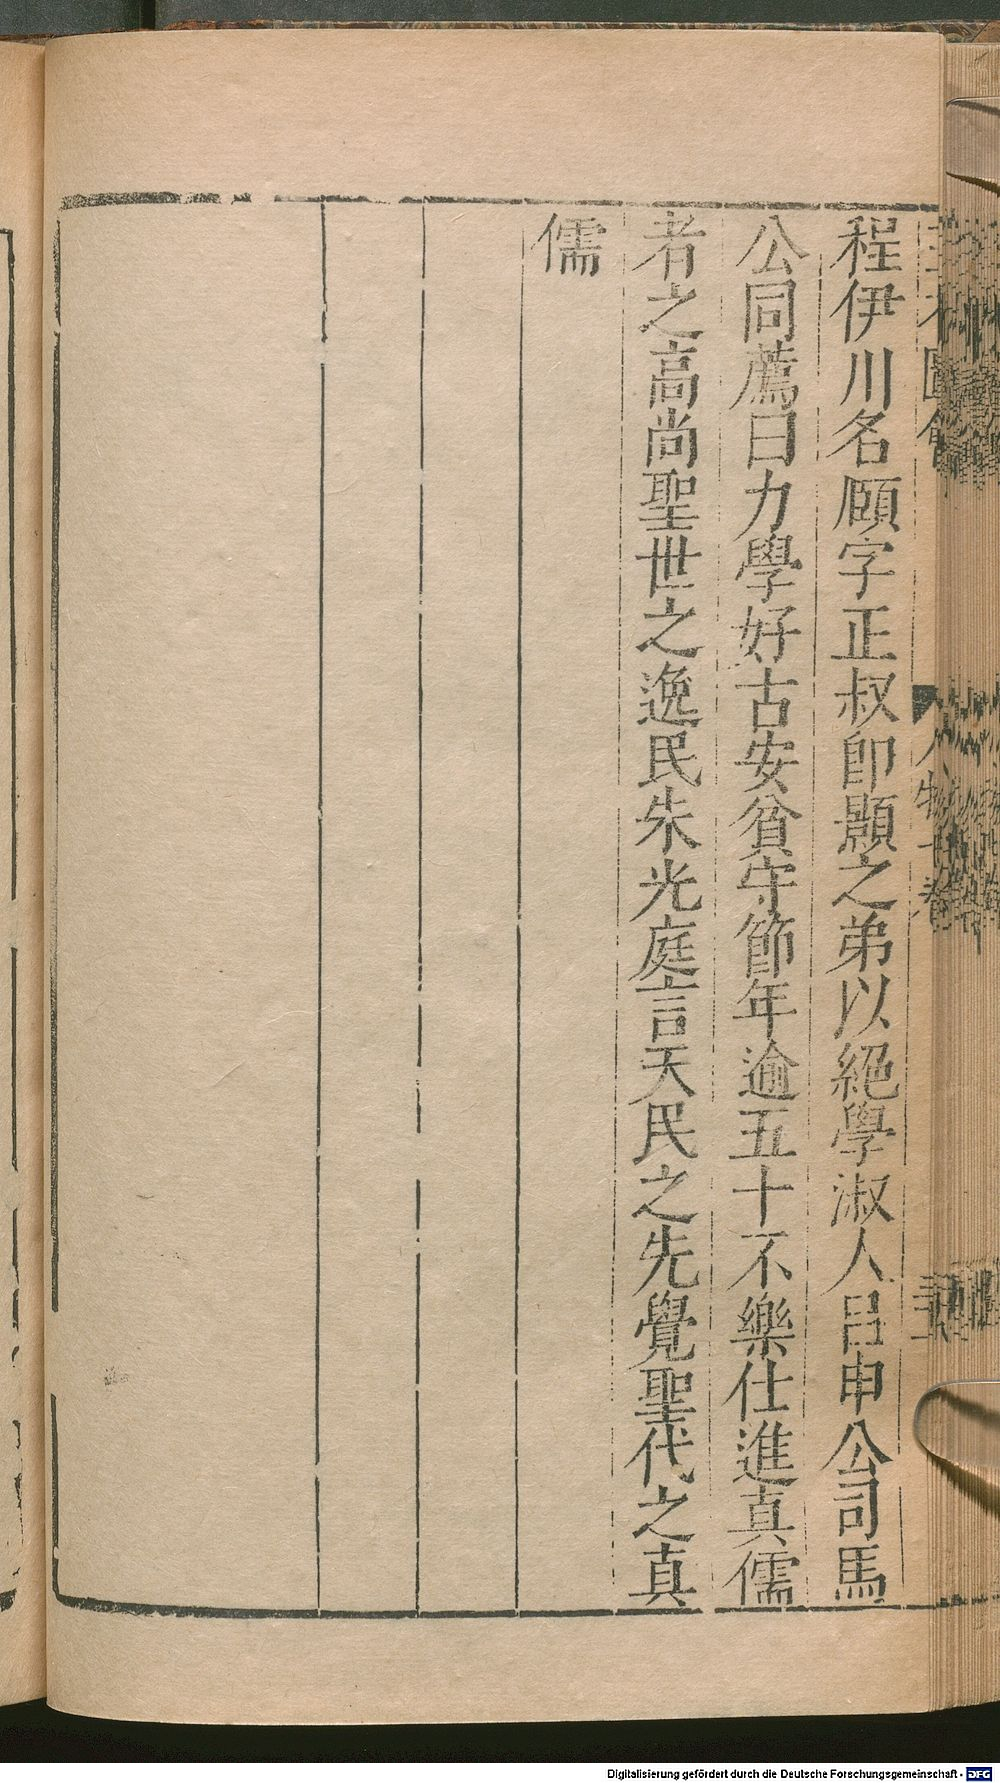 程伊川名頤字正叔卽顥之弟以絕學淑人呂申公司馬
公同薦曰力學好古安貧守節年逾五十不樂仕進真儒
者之高尚聖世之逸民朱光庭言天民之先覺聖代之真
儒
人物十卷
Digitalisierung gefördert durch die Deutsche Forschungsgemeinschaft - DFG